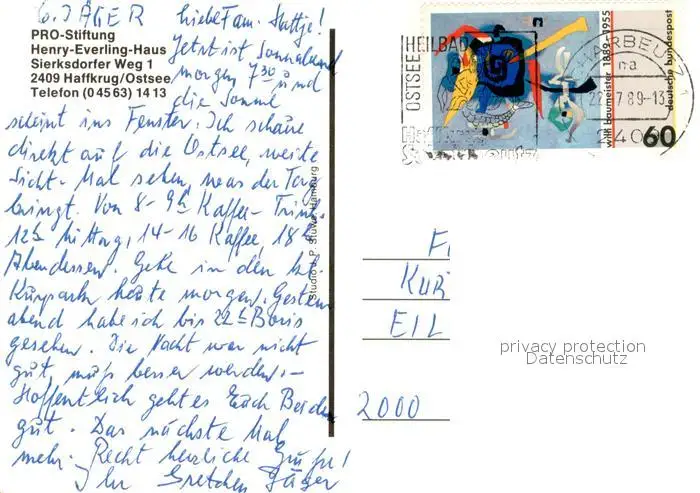 G. JÄGER
PRO-Stiftung
Henry-Everling-Haus
Sierksdorfer Weg 1
2409 Haffkrug/Ostsee
Telefon (0 45 63) 14 13
Liebe Fam. !
Jetzt ist Sonnabend
morgen 7 30 und
die Sonne
scheint ins Fenster. Ich schaue
direkt auf die Ostsee, weite
Sicht. Mal sehen, was der Tag
bringt. Von 8-9h Kaffee-Trink.
12h Mittag, 14-16 Kaffee, 18h
Abendessen. Gehe in den
Kurpark heute morgen. Gestern
abend habe ich bis 22h Boris
gesehen. Die Nacht war nicht
gut, muß besser werden.-
Hoffentlich geht es Euch Beiden
gut. Das nächste Mal
mehr. Recht herzliche Grüße!
Ihr Gretchen Jäger
Studio P. Stuwe, Hamburg
OSTSEE
HEILBAD
HARBEUTZ 1
22. 7 89-13
240
willi baumeister 1889-1955
deutsche bundespost
60
F
KUR
EIL
2000
privacy protection
Datenschutz